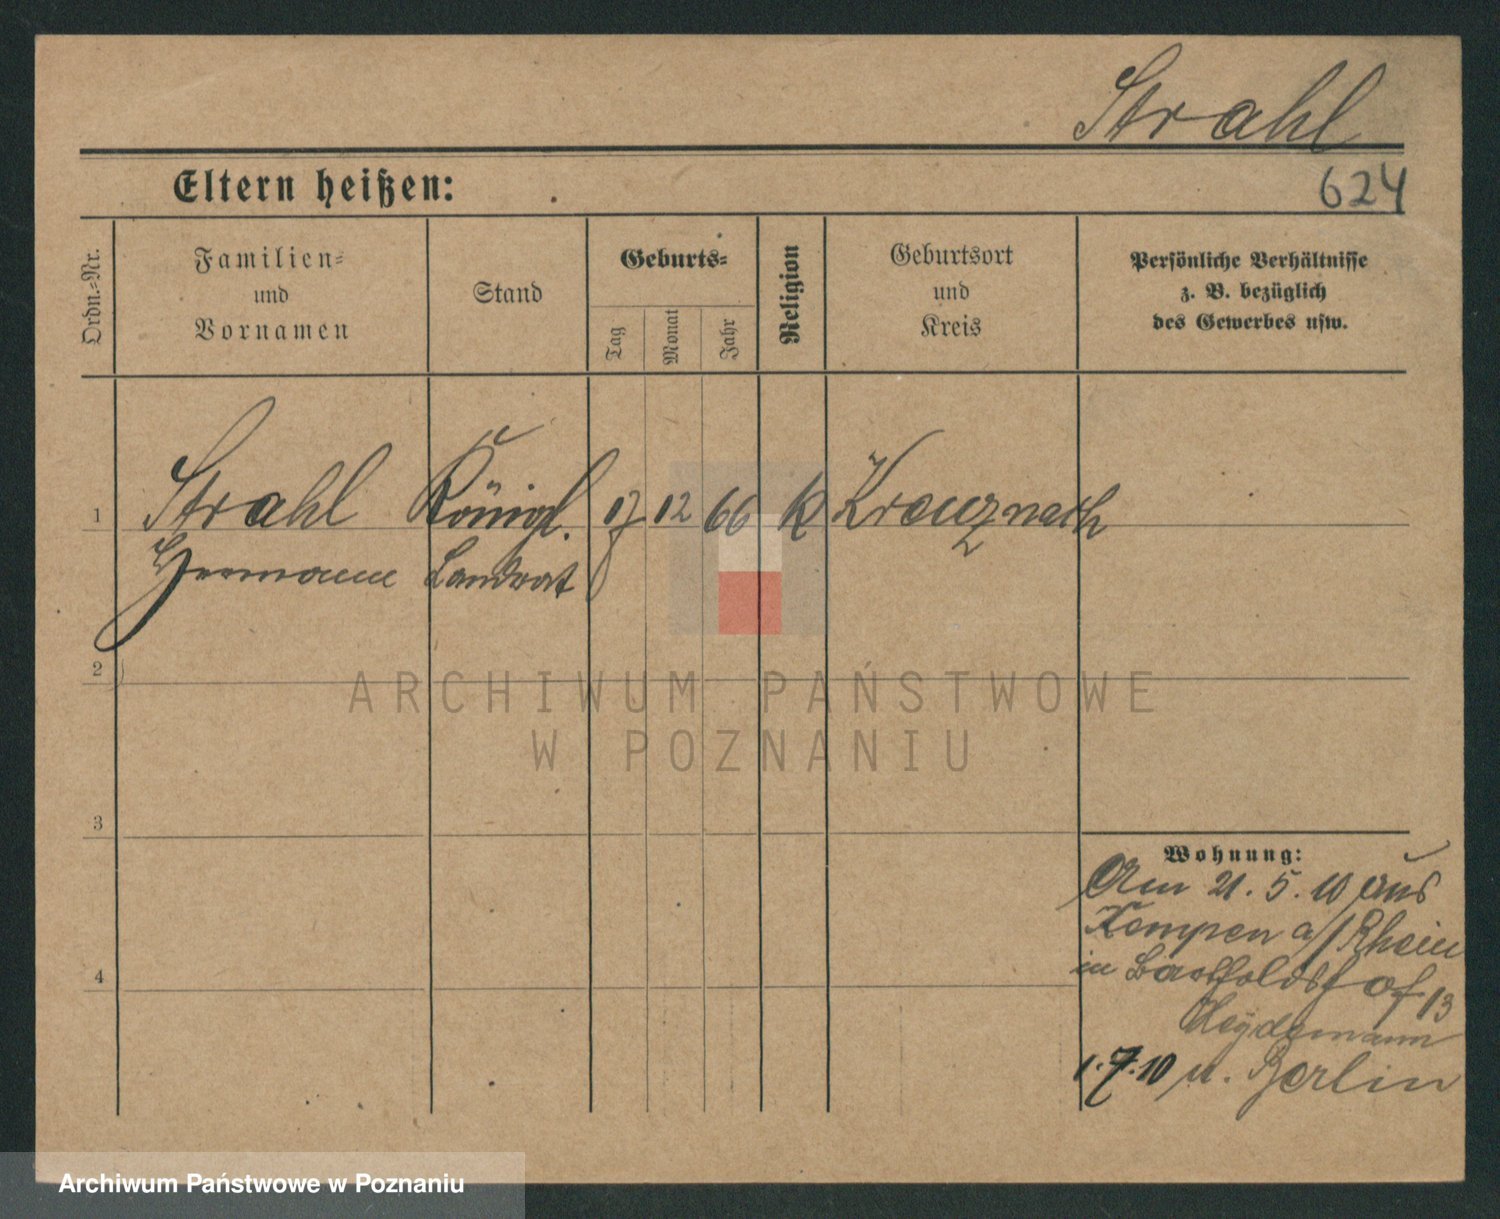 Strahl
624
Eltern heißen:
Ordn.=Nr.
Familien=
und
Vornamen
Stand
Geburts=
Tag
Monat
Jahr
Religion
Geburtsort
und
Kreis
Persönliche Verhältnisse
z. B. bezüglich
des Gewerbes usw.
1
Strahl Königl. 17 12 66 k Kreuznach
Hermann Landrat
2
3
4
Wohnung:
Am 21. 5. 10 aus
Kempen a/Rhein
in 13
Heydemann
1.7.10 n. Berlin
ARCHIWUM PAŃSTWOWE
W POZNANIU
Archiwum Państwowe w Poznaniu